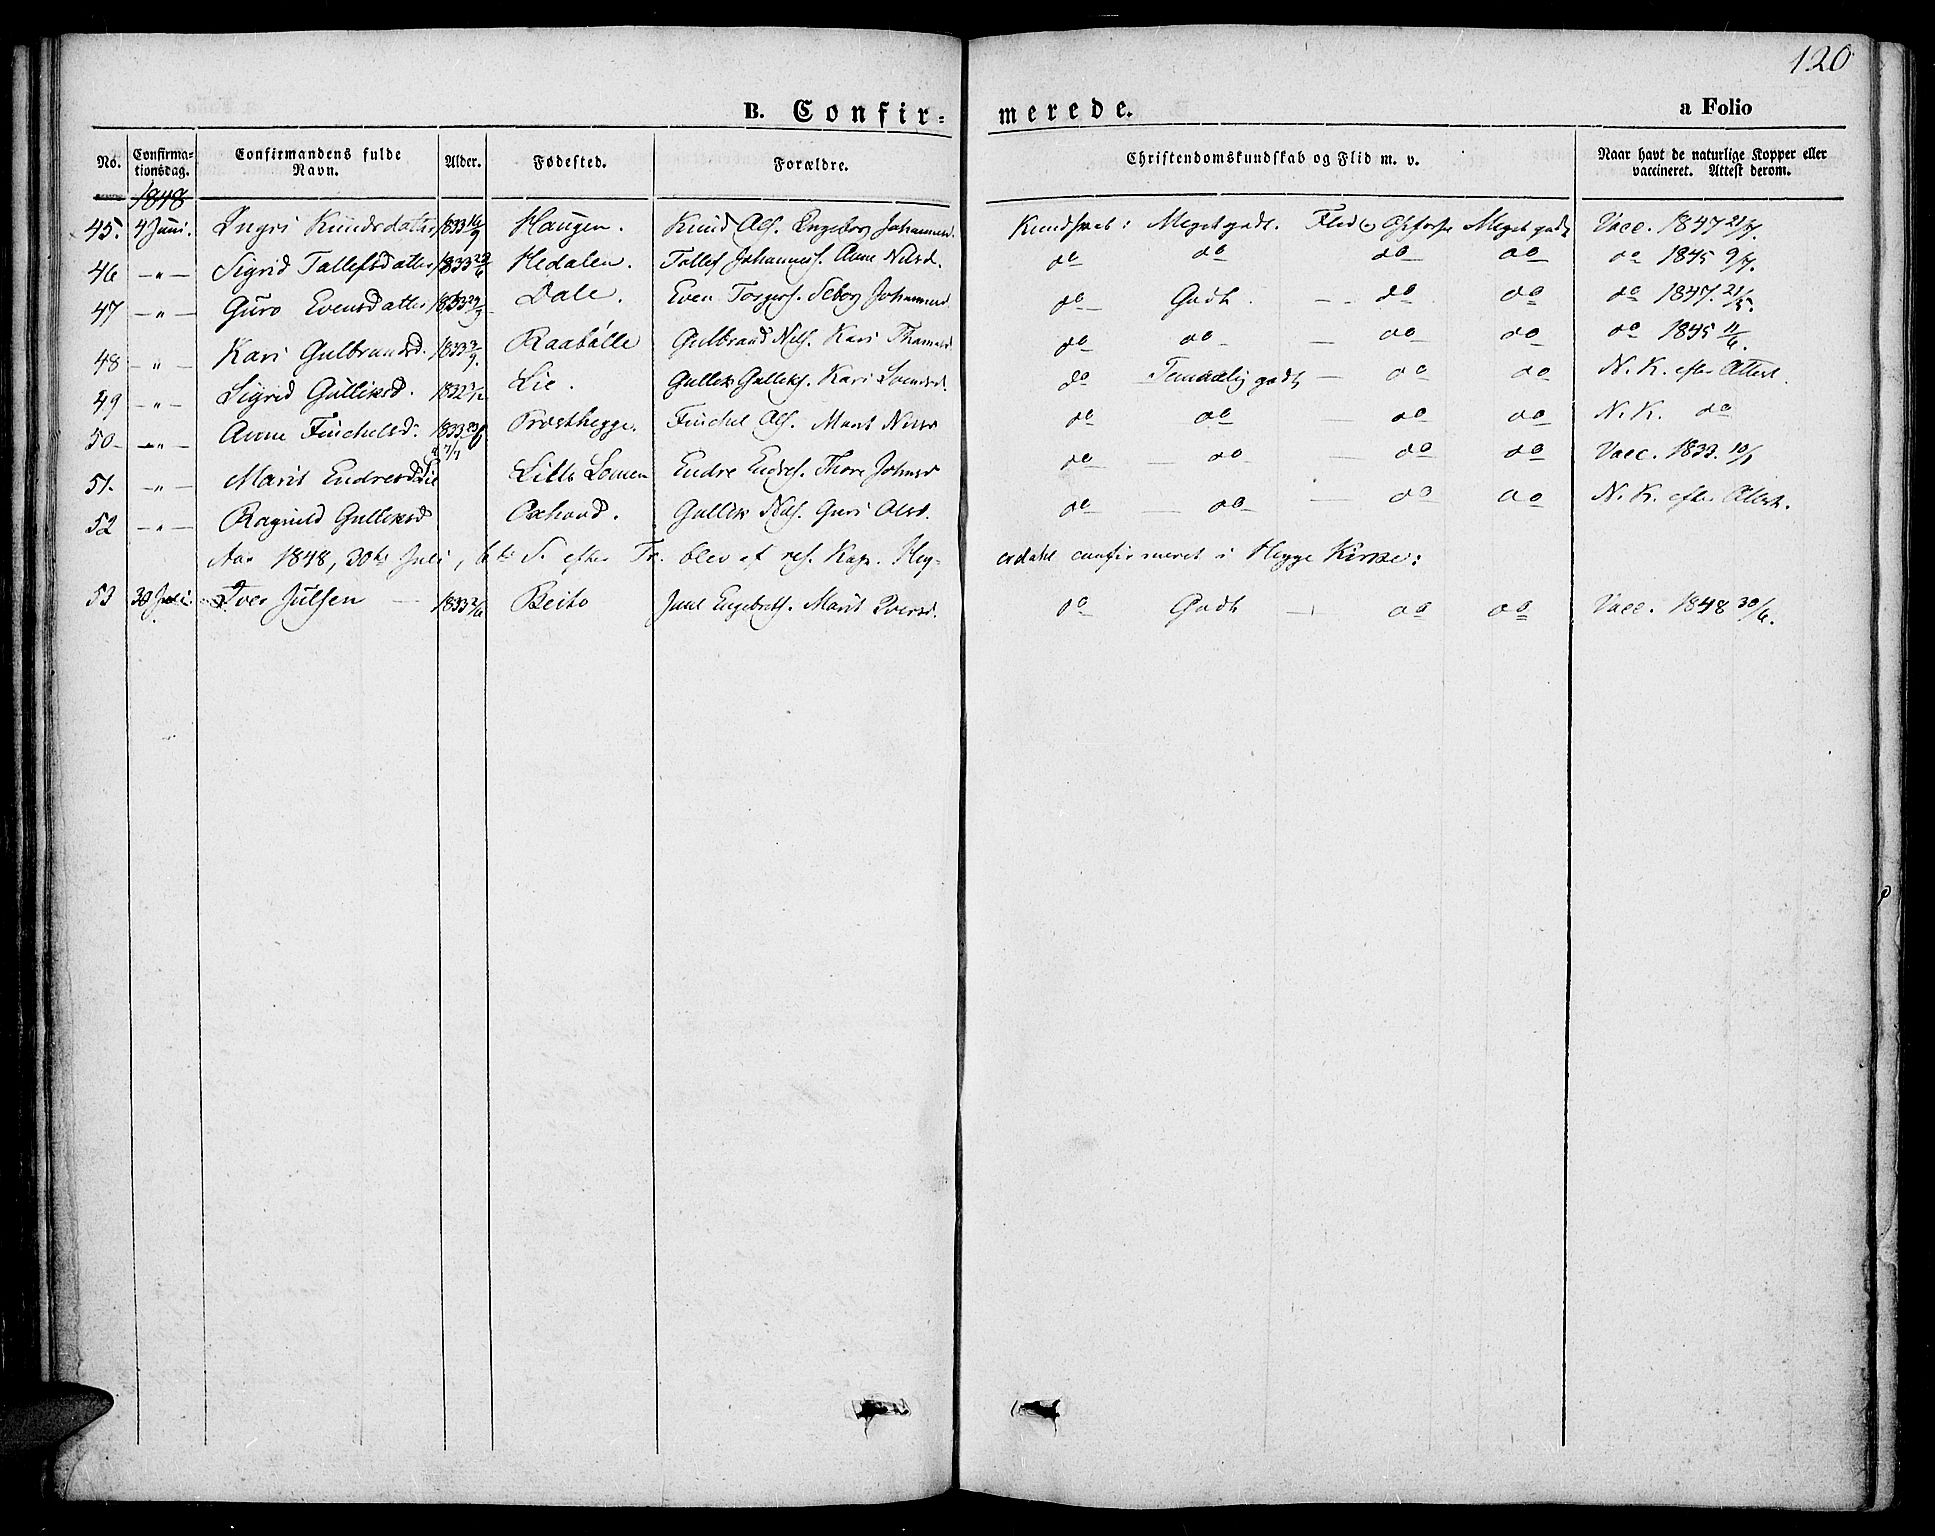 120
B. Confir= merede. a Folio
No. Confirma= tionsdag. Confirmandens fulde Navn. Alder. Fødested. Forældre. Christendomskundskab og Flid m. v. Naar havt de naturlige Kopper eller vaccineret. Attest derom.
1848
45. 4 Juni. Ingri Knudsdatter 1833 16/9 Haugen. Knud Ols. Engebor Johannesd. Kundskab: Meget godt. Flid Meget godt Vacc. 1847 21/7.
46 -"- Sigrid Tollefsdatter 1833 Hedalen. Tollef Johanness. Anne Nilsd. do do do do do 1845 9/7.
47 -"- Guro Evensdatter Dale. Even Torgers. Sebor Johannesd. do Godt. - do do do 1847. 21/5.
48 -"- Kari Gulbrandsd. 1833 Raabølle Gulbrand Nils. Kari Thomasd do do - do do do 1845 11/6.
49 -"- Sigrid Gulliksd. 1832 Lie. Gullik Gulliks. Kari Svendsd. do Temmelig godt - do do N. K. efter Attest.
50 -"- Anne Finchelsd. 1833 Præsthegge. Finchel Ols. Marit Nilsd do do - do do N. K. do
51. -"- Marit Endresd. Lie Lille Lomen Endre Endres. Thore Johnsd do - do - do do Vacc. 1833. 10/
52 -"- Ragnild Gulliksd Oxhovd. Gullik Nils. Guri Olsd. do - do - do do N. K. efter Attest.
Aar 1848, 30te Juli, 6te S. efter Tr. blev af res. Kap. Heyerdahl confirmeret i Hegge Kirke:
53 30 Juli Iver Julsen 1833 Beito Juul Engebrets. Marit Iversd. do Godt - do do Vacc. 1848 30/6.